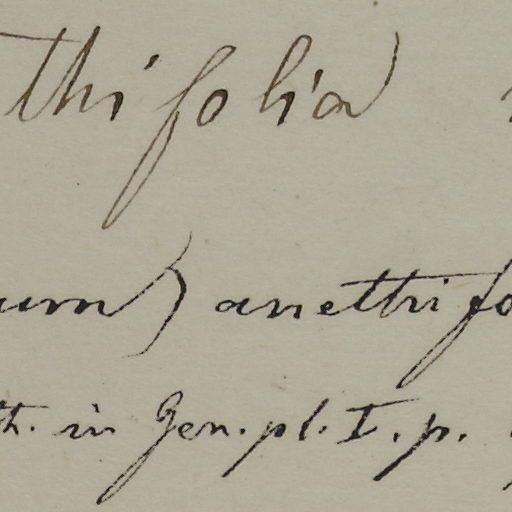 thifolia
um) anethifo
th. in Gen. pl. I. p.